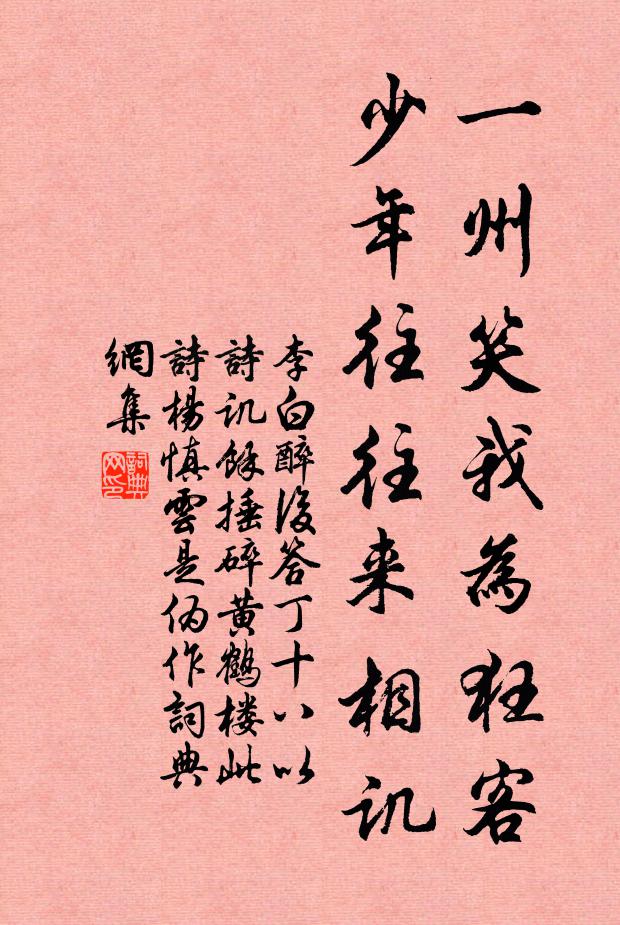 一州笑我為狂客
少年往往来相讥
李白醉後答丁十八以
詩讥餘捶碎黄鶴楼此
詩楊慎雲是偽作詞典
網集
詞典網印